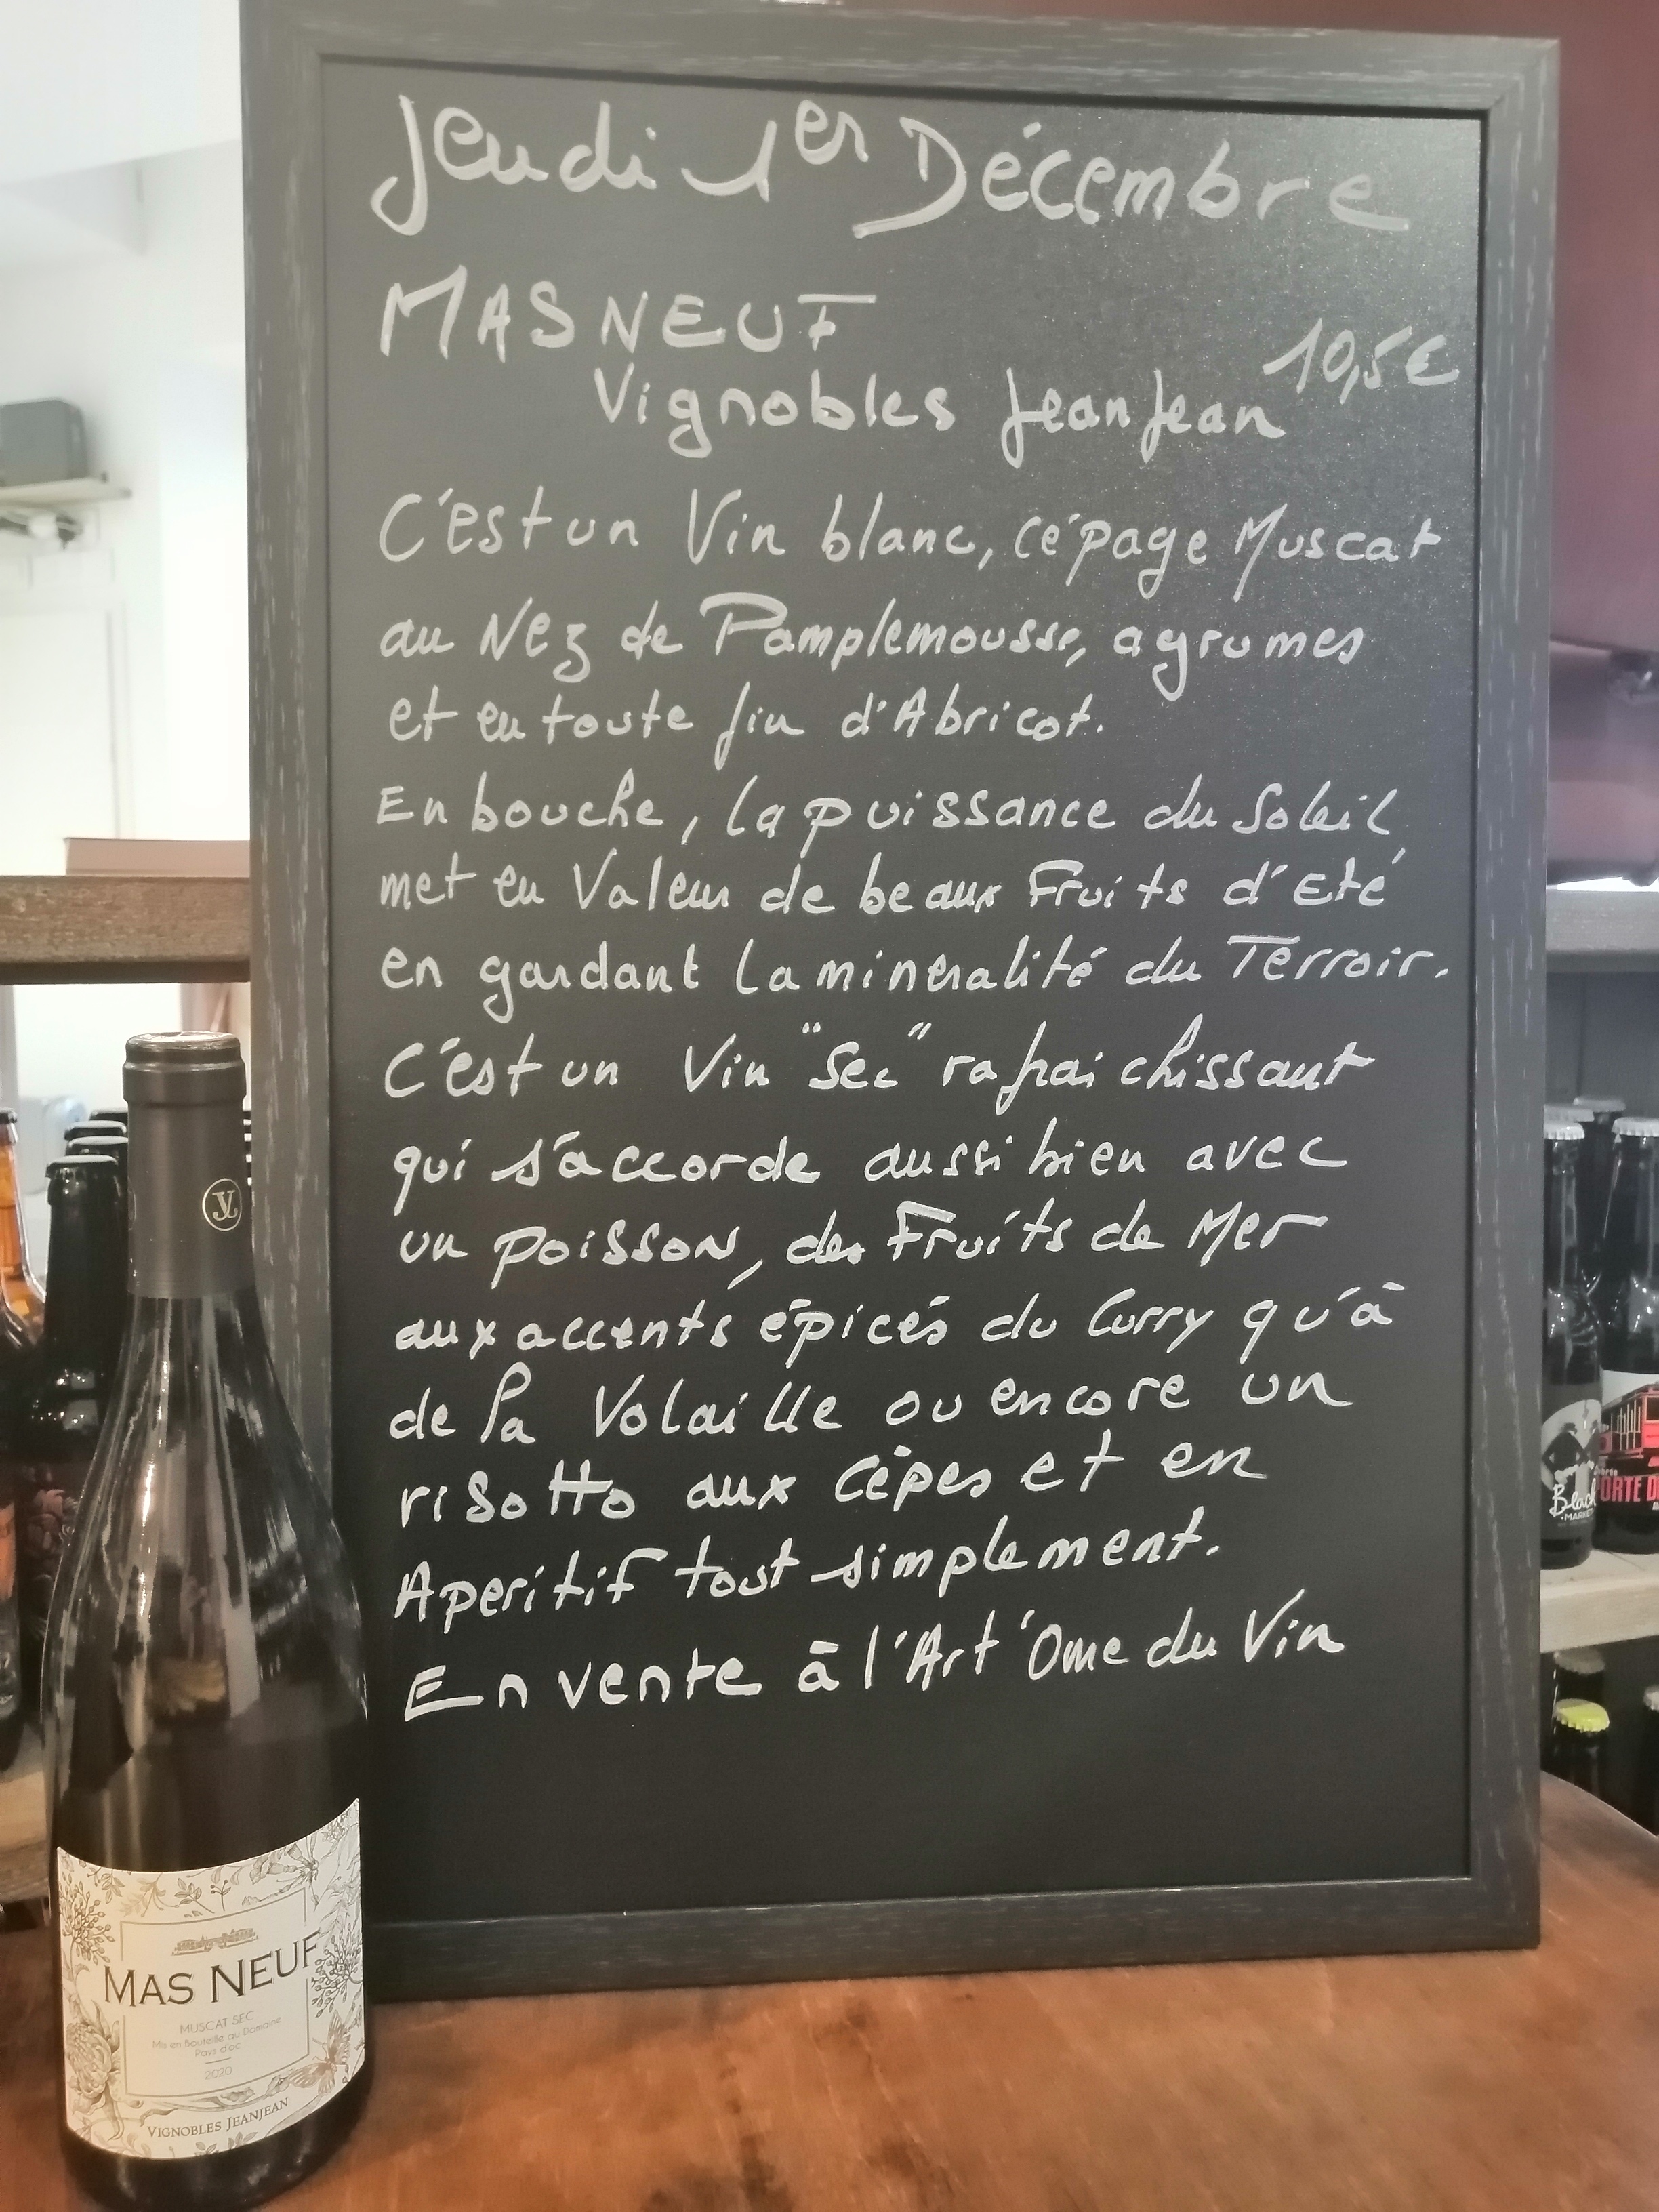 Jeudi 1er Décembre
MAS NEUF
10,5€
Vignobles JeanJean
C'est un Vin blanc, cépage Muscat
au Nez de Pamplemousse, agrumes
et en toute fin d'Abricot.
En bouche, la puissance du Soleil
met en Valeur de beaux Fruits d'Eté
en gardant la minéralité du Terroir.
C'est un Vin "Sec" rafraichissant
qui s'accorde aussi bien avec
un poisson, des Fruits de Mer
aux accents épicés du Curry qu'à
de la Volaille ou encore un
risotto aux Cèpes et en
Aperitif tout simplement.
En vente à l'Art'Ome du Vin
MAS NEUF
MUSCAT SEC
Mis en Bouteille au Domaine
Pays d'oc
2020
VIGNOBLES JEANJEAN
Black
MARKET
PORTE D